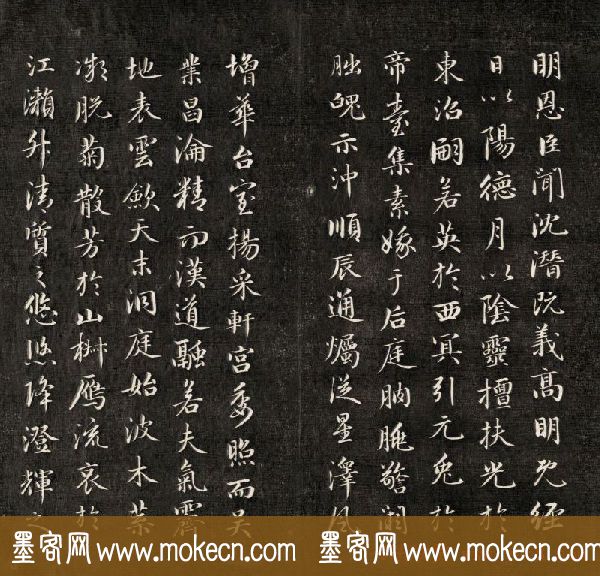 明恩臣聞沈潛既義高明既經
日以陽德月以陰靈擅扶光於
東沼嗣若英於西冥引元兔於
帝臺集素娥于后庭朒朓警闕
朏魄示沖順辰通爥從星澤風
增華台室揚采軒宮委照而吳
業昌淪精而漢道融若夫氣霽
地表雲歛天末洞庭始波木葉
微脫菊散芳於山椒鴈流哀於
江瀨升清質之悠悠降澄輝之
墨客网 www.mokecn.com 墨客网 www.mokecn.com